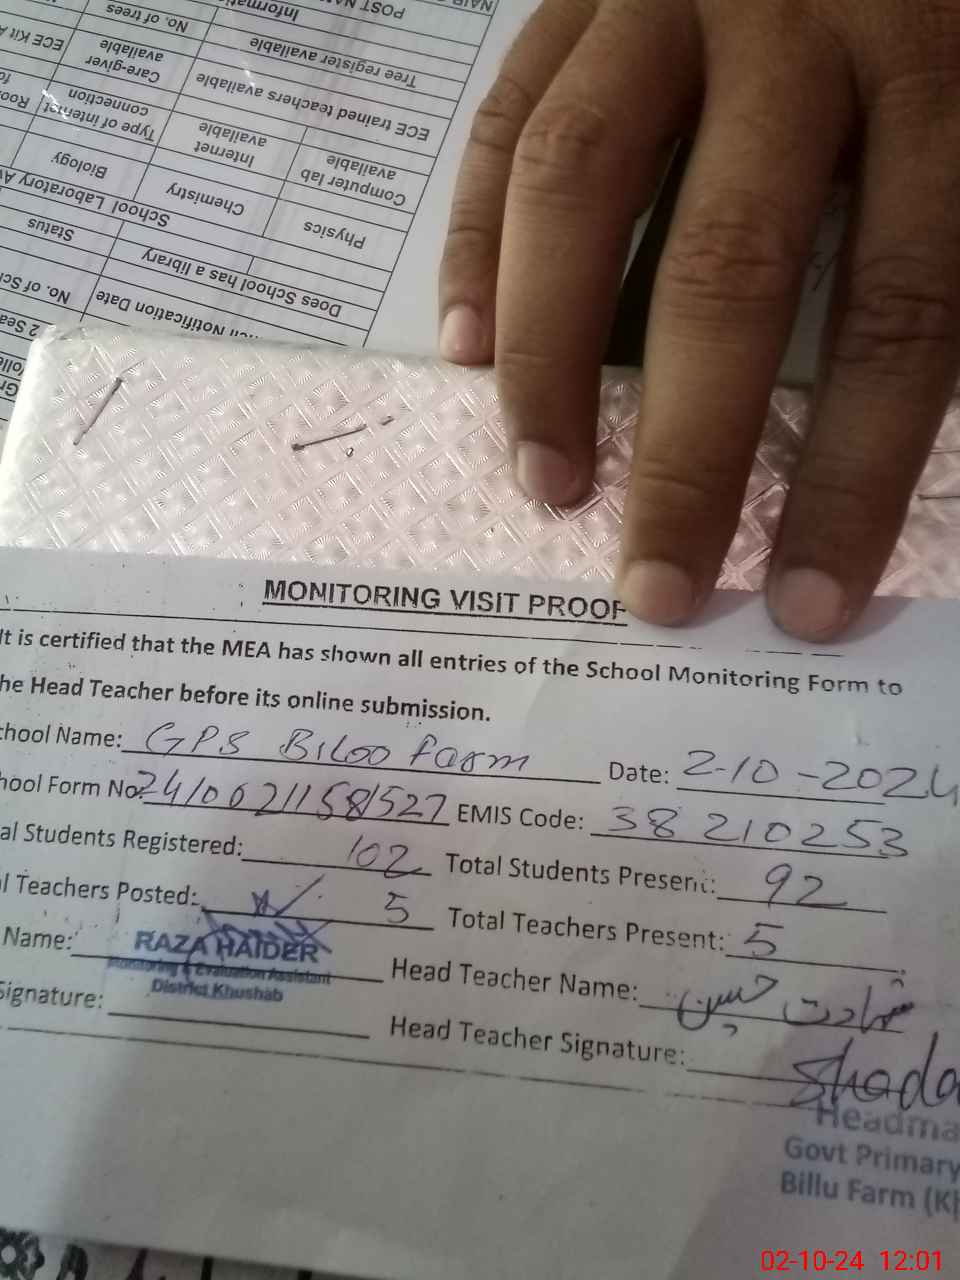 NAIB
POST NA
Informati
No. of trees
Tree register available
Care-giver
available
ECE Kit A
ECE trained teachers available
Type of internet
connection
Internet
available
Computer lab
available
Biology
Chemistry
Physics
School Laboratory Av
Status
Does School has a library
No. of Sc
Notification Date
MONITORING VISIT PROOF
It is certified that the MEA has shown all entries of the School Monitoring Form to
he Head Teacher before its online submission.
chool Name: GPS Biloo Farm Date: 2-10-2024
hool Form No: 24100211581527 EMIS Code: 38210253
al Students Registered: 102 Total Students Present: 92
l Teachers Posted: 5 Total Teachers Present: 5
Name: RAZA HAIDER Head Teacher Name: شہادت حسین
Monitoring & Evaluation Assistant
District Khushab
Signature: Head Teacher Signature: Shada
Headma
Govt Primary
Billu Farm (K
02-10-24 12:01